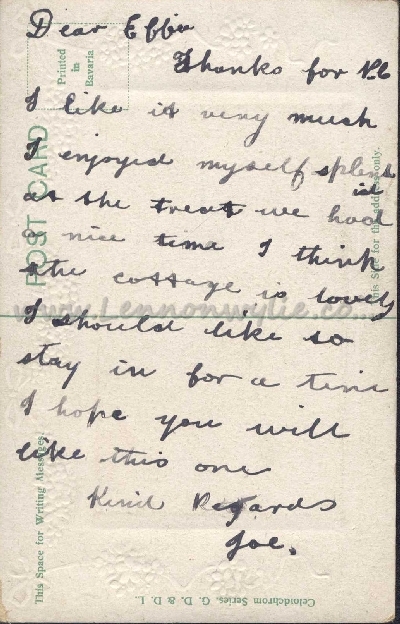 Dear Effie
Thanks for P.C
I like it very much
I enjoyed myself splend
id
at the treat we had
a nice time I think
the cottage is lovely
I should like to
stay in for a time
I hope you will
like this one
Kind Regards
Joe.
Printed
in
Bavaria
POST CARD
This Space for Writing Messages.
This Side for the address only.
www.Lennonwylie.co.
Celmidchrom Series. G. D. & D. L.